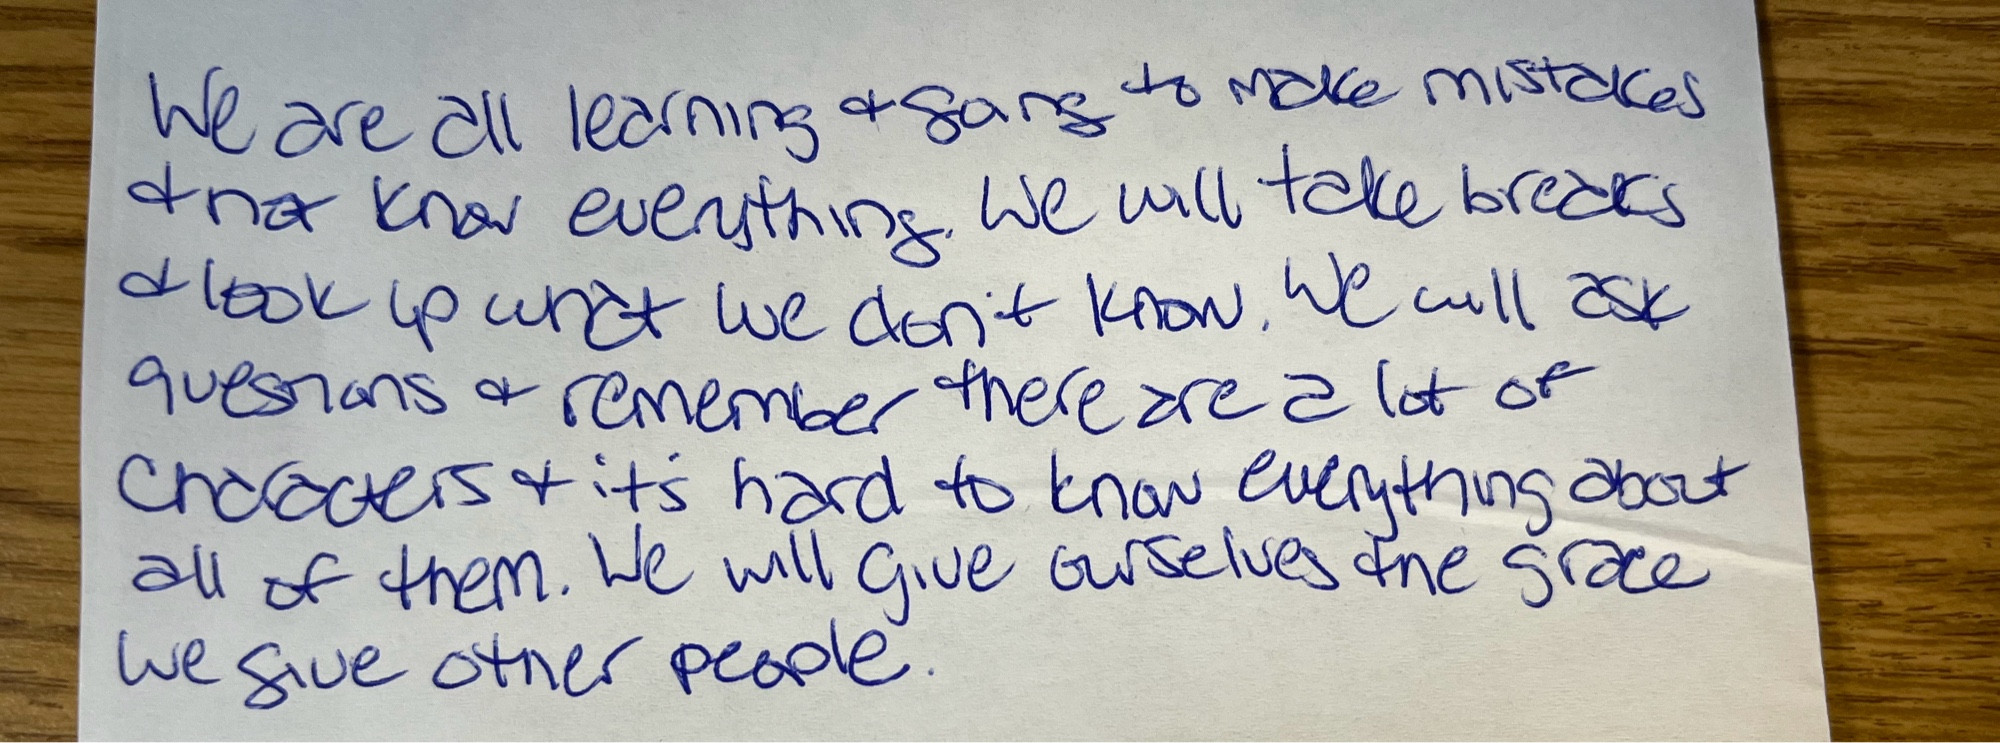 We are all learning & going to make mistakes
& not know everything. We will take breaks
& look up what we don't know. We will ask
questions & remember there are a lot of
characters & it's hard to know everything about
all of them. We will give ourselves the grace
we give other people.